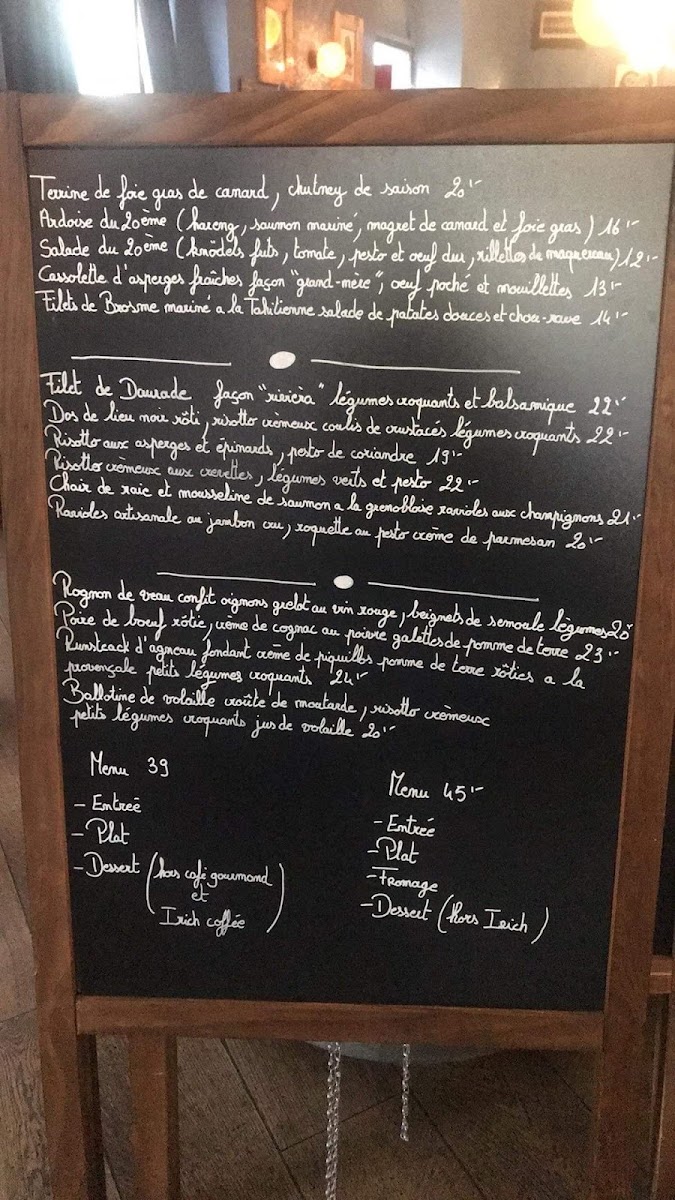 Terrine de foie gras de canard, chutney de saison 20'-
Ardoise du 20ème (hareng, saumon mariné, magret de canard et foie gras) 16'-
Salade du 20ème (knödels frits, tomate, pesto et oeuf dur, rillettes de maquereau) 12'-
Cassolette d'asperges fraîches façon "grand-mère", oeuf poché et mouillettes 13'-
Filets de Brosme mariné a la Tahitienne salade de patates douces et chou-rave 14'-
Filet de Daurade façon "rivièra" légumes croquants et balsamique 22'-
Dos de lieu noir rôti, risotto crèmeux coulis de crustacés légumes croquants 22'-
Risotto aux asperges et épinards, pesto de coriandre 19'-
Risotto crèmeux aux crevettes, légumes verts et pesto 22'-
Chair de raie et mousseline de saumon a la grenobloise ravioles aux champignons 21'-
Ravioles artisanale au jambon cru, roquette au pesto crème de parmesan 20'-
Rognon de veau confit oignons grelot au vin rouge, beignets de semoule légumes
Poire de boeuf rôtie, crème de cognac au poivre galettes de pomme de terre 23'-
Rumsteack d'agneau fondant crème de piquillos pomme de terre rôties a la
provençale petits légumes croquants 24'-
Ballotine de volaille croûte de moutarde, risotto crèmeux
petits légumes croquants jus de volaille 20'-
Menu 39
- Entreé
- Plat
- Dessert (hors café gourmand
et
Irich coffée)
Menu 45'-
- Entreé
- Plat
- Fromage
- Dessert (hors Irich)